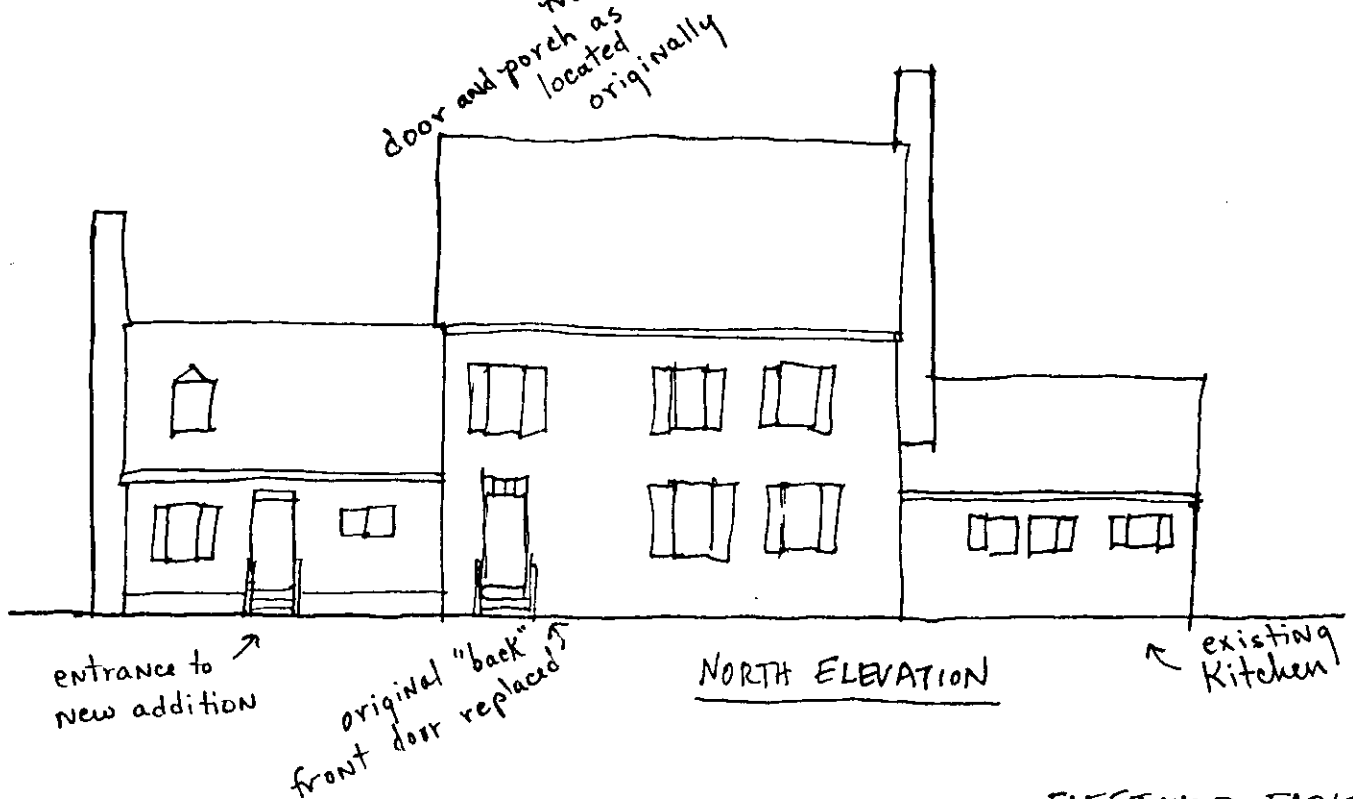 door and porch as
located
originally
entrance to
new addition
original "back"
front door replaced
NORTH ELEVATION
existing
Kitchen